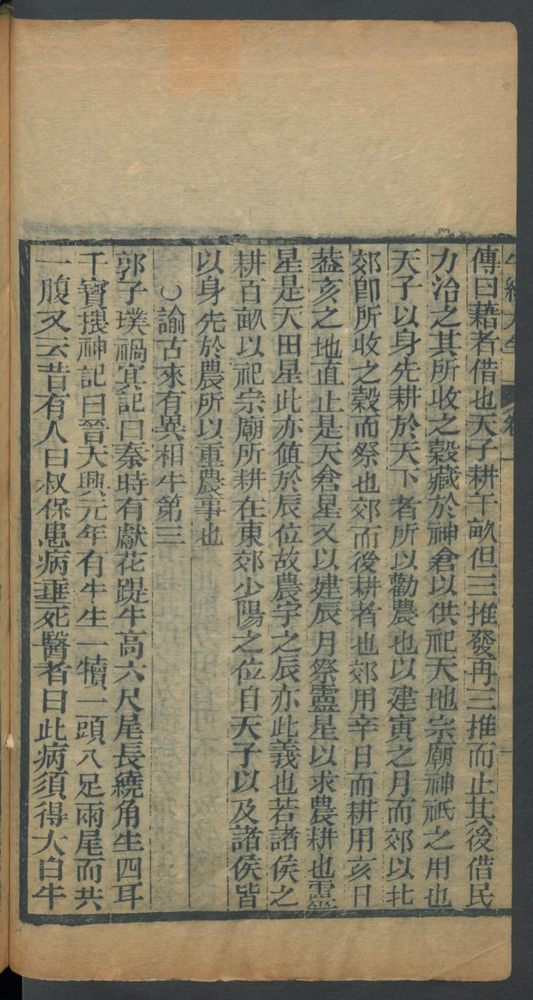 傳曰藉者借也天子耕千畝但三推發再三推而止其後借民
力治之其所收之穀藏於神倉以供祀天地宗廟神祇之用也
天子以身先耕於天下者所以勸農也以建寅之月而郊以北
郊即所收之穀而祭也郊而後耕者也郊用辛日而耕用亥日
葢亥之地直止是天倉星又以建辰月祭靈星以求農耕也靈
星是天田星此亦値於辰位故農字之辰亦此義也若諸侯之
耕百畝以祀宗廟所耕在東郊少陽之位自天子以及諸侯皆
以身先於農所以重農事也
○諭古來有異相牛第三
郭子璞禍寞記曰秦時有獻花蹄牛高六尺尾長繞角生四耳
干寶搜神記曰晉大興元年有牛生一犢一頭八足兩尾而共
一腹又云昔有人曰叔保患病垂死醫者曰此病須得大白牛